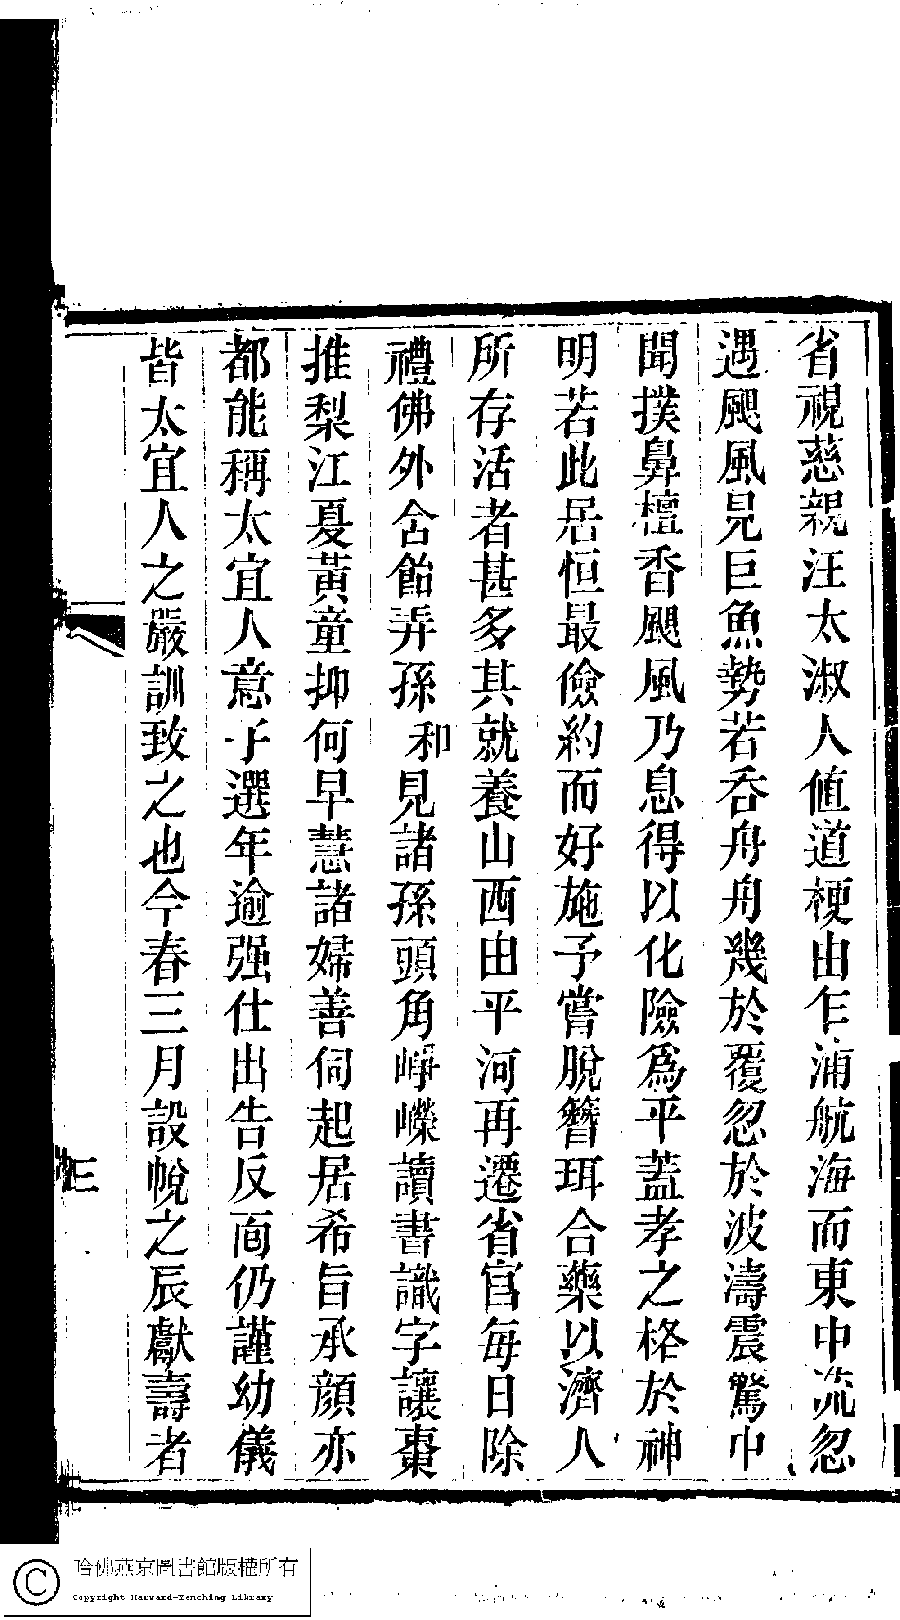 省視慈親汪太淑人值道梗由乍浦航海而東中流忽
遇颶風見巨魚勢若吞舟舟幾於覆忽於波濤震驚中
聞撲鼻檀香颶風乃息得以化險爲平蓋孝之格於神
明若此居恒最儉約而好施予嘗脫簪珥合藥以濟人
所存活者甚多其就養山西由平河再遷省官每日除
禮佛外含飴弄孫和見諸孫頭角崢嶸讀書識字讓棗
推梨江夏黃童抑何早慧諸婦善伺起居希旨承顏亦
都能稱太宜人意子選年逾强仕出告反面仍謹幼儀
皆太宜人之嚴訓致之也今春三月設帨之辰獻壽者
三
哈佛燕京圖書館版權所有
Copyright Harvard-Yenching Library